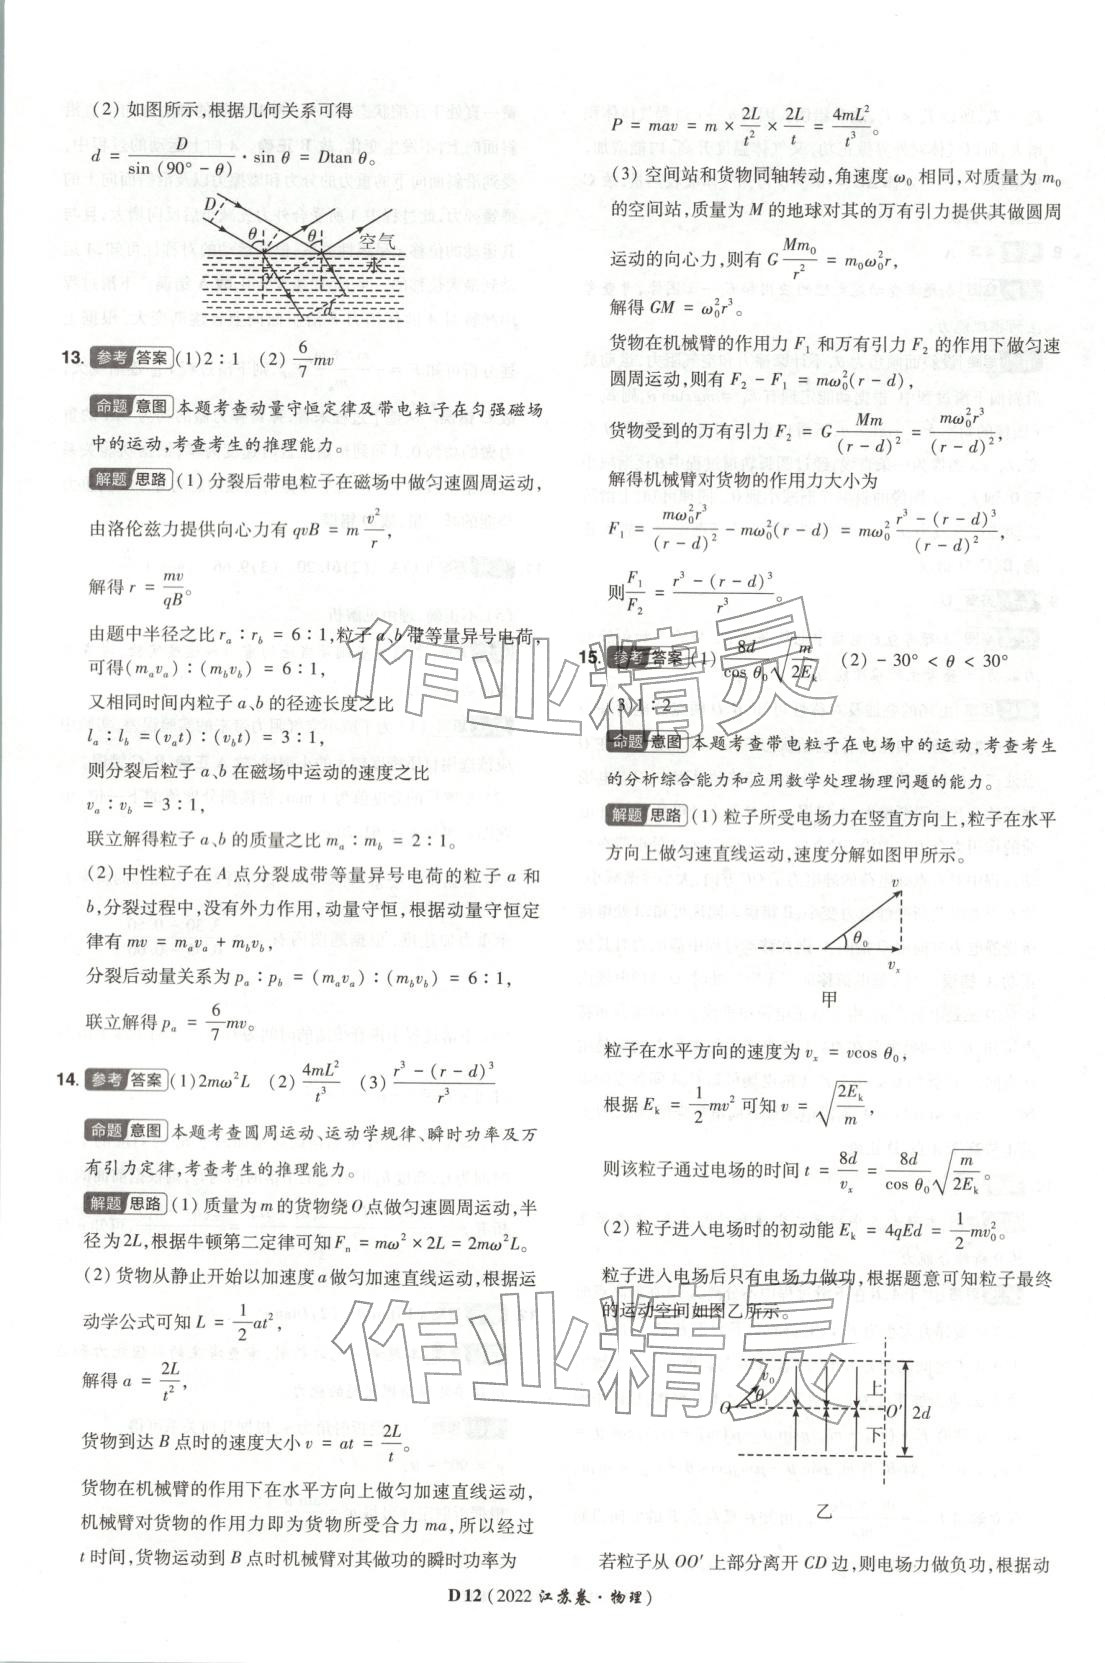 (2) 如图所示,根据几何关系可得
d = D/sin (90° − θ) · sin θ = Dtan θ。
D θ θ 空气
水
γ
d
13. 参考 答案 (1)2∶1 (2) 6/7 mv
命题 意图 本题考查动量守恒定律及带电粒子在匀强磁场
中的运动,考查考生的推理能力。
解题 思路 (1) 分裂后带电粒子在磁场中做匀速圆周运动,
由洛伦兹力提供向心力有 qvB = m v²/r,
解得 r = mv/qB。
由题中半径之比 rₐ∶r_b = 6∶1,粒子 a、b 带等量异号电荷,
可得(mₐvₐ)∶(m_bv_b) = 6∶1,
又相同时间内粒子 a、b 的径迹长度之比
lₐ∶l_b =(vₐt)∶(v_bt) = 3∶1,
则分裂后粒子 a、b 在磁场中运动的速度之比
vₐ∶v_b = 3∶1,
联立解得粒子 a、b 的质量之比 mₐ∶m_b = 2∶1。
(2) 中性粒子在 A 点分裂成带等量异号电荷的粒子 a 和
b,分裂过程中,没有外力作用,动量守恒,根据动量守恒定
律有 mv = mₐvₐ + m_bv_b,
分裂后动量关系为 pₐ∶p_b = (mₐvₐ)∶(m_bv_b) = 6∶1,
联立解得 pₐ = 6/7 mv。
14. 参考 答案 (1)2mω²L (2) 4mL²/t³ (3) (r³ − (r − d)³)/r³
命题 意图 本题考查圆周运动、运动学规律、瞬时功率及万
有引力定律,考查考生的推理能力。
解题 思路 (1) 质量为 m 的货物绕 O 点做匀速圆周运动,半
径为2L,根据牛顿第二定律可知 Fₙ = mω² × 2L = 2mω²L。
(2) 货物从静止开始以加速度 a 做匀加速直线运动,根据运
动学公式可知 L = 1/2 at²,
解得 a = 2L/t²,
货物到达 B 点时的速度大小 v = at = 2L/t。
货物在机械臂的作用下在水平方向上做匀加速直线运动,
机械臂对货物的作用力即为货物所受合力 ma,所以经过
t 时间,货物运动到 B 点时机械臂对其做功的瞬时功率为
P = mav = m × 2L/t² × 2L/t = 4mL²/t³。
(3) 空间站和货物同轴转动,角速度 ω₀ 相同,对质量为 m₀
的空间站,质量为 M 的地球对其的万有引力提供其做圆周
运动的向心力,则有 G Mm₀/r² = m₀ω₀²r,
解得 GM = ω₀²r³。
货物在机械臂的作用力 F₁ 和万有引力 F₂ 的作用下做匀速
圆周运动,则有 F₂ − F₁ = mω₀²(r − d),
货物受到的万有引力 F₂ = G Mm/(r − d)² = mω₀²r³/(r − d)²,
解得机械臂对货物的作用力大小为
F₁ = mω₀²r³/(r − d)² − mω₀²(r − d) = mω₀² (r³ − (r − d)³)/(r − d)²,
则 F₁/F₂ = (r³ − (r − d)³)/r³。
15. 参考 答案 (1) 8d/cos θ₀ √(m/2Eₖ) (2) − 30° < θ < 30°
(3)1∶2
命题 意图 本题考查带电粒子在电场中的运动,考查考生
的分析综合能力和应用数学处理物理问题的能力。
解题 思路 (1) 粒子所受电场力在竖直方向上,粒子在水平
方向上做匀速直线运动,速度分解如图甲所示。
v
θ₀
vₓ
甲
粒子在水平方向的速度为 vₓ = vcos θ₀,
根据 Eₖ = 1/2 mv² 可知 v = √(2Eₖ/m),
则该粒子通过电场的时间 t = 8d/vₓ = 8d/cos θ₀ √(m/2Eₖ)。
(2) 粒子进入电场时的初动能 Eₖ = 4qEd = 1/2 mv₀²。
粒子进入电场后只有电场力做功,根据题意可知粒子最终
的运动空间如图乙所示。
v₀ 上
O θ₁ O′ 2d
下
乙
若粒子从 OO′ 上部分离开 CD 边,则电场力做负功,根据动
D12 (2022 江苏卷·物理)
作业精灵
作业精灵